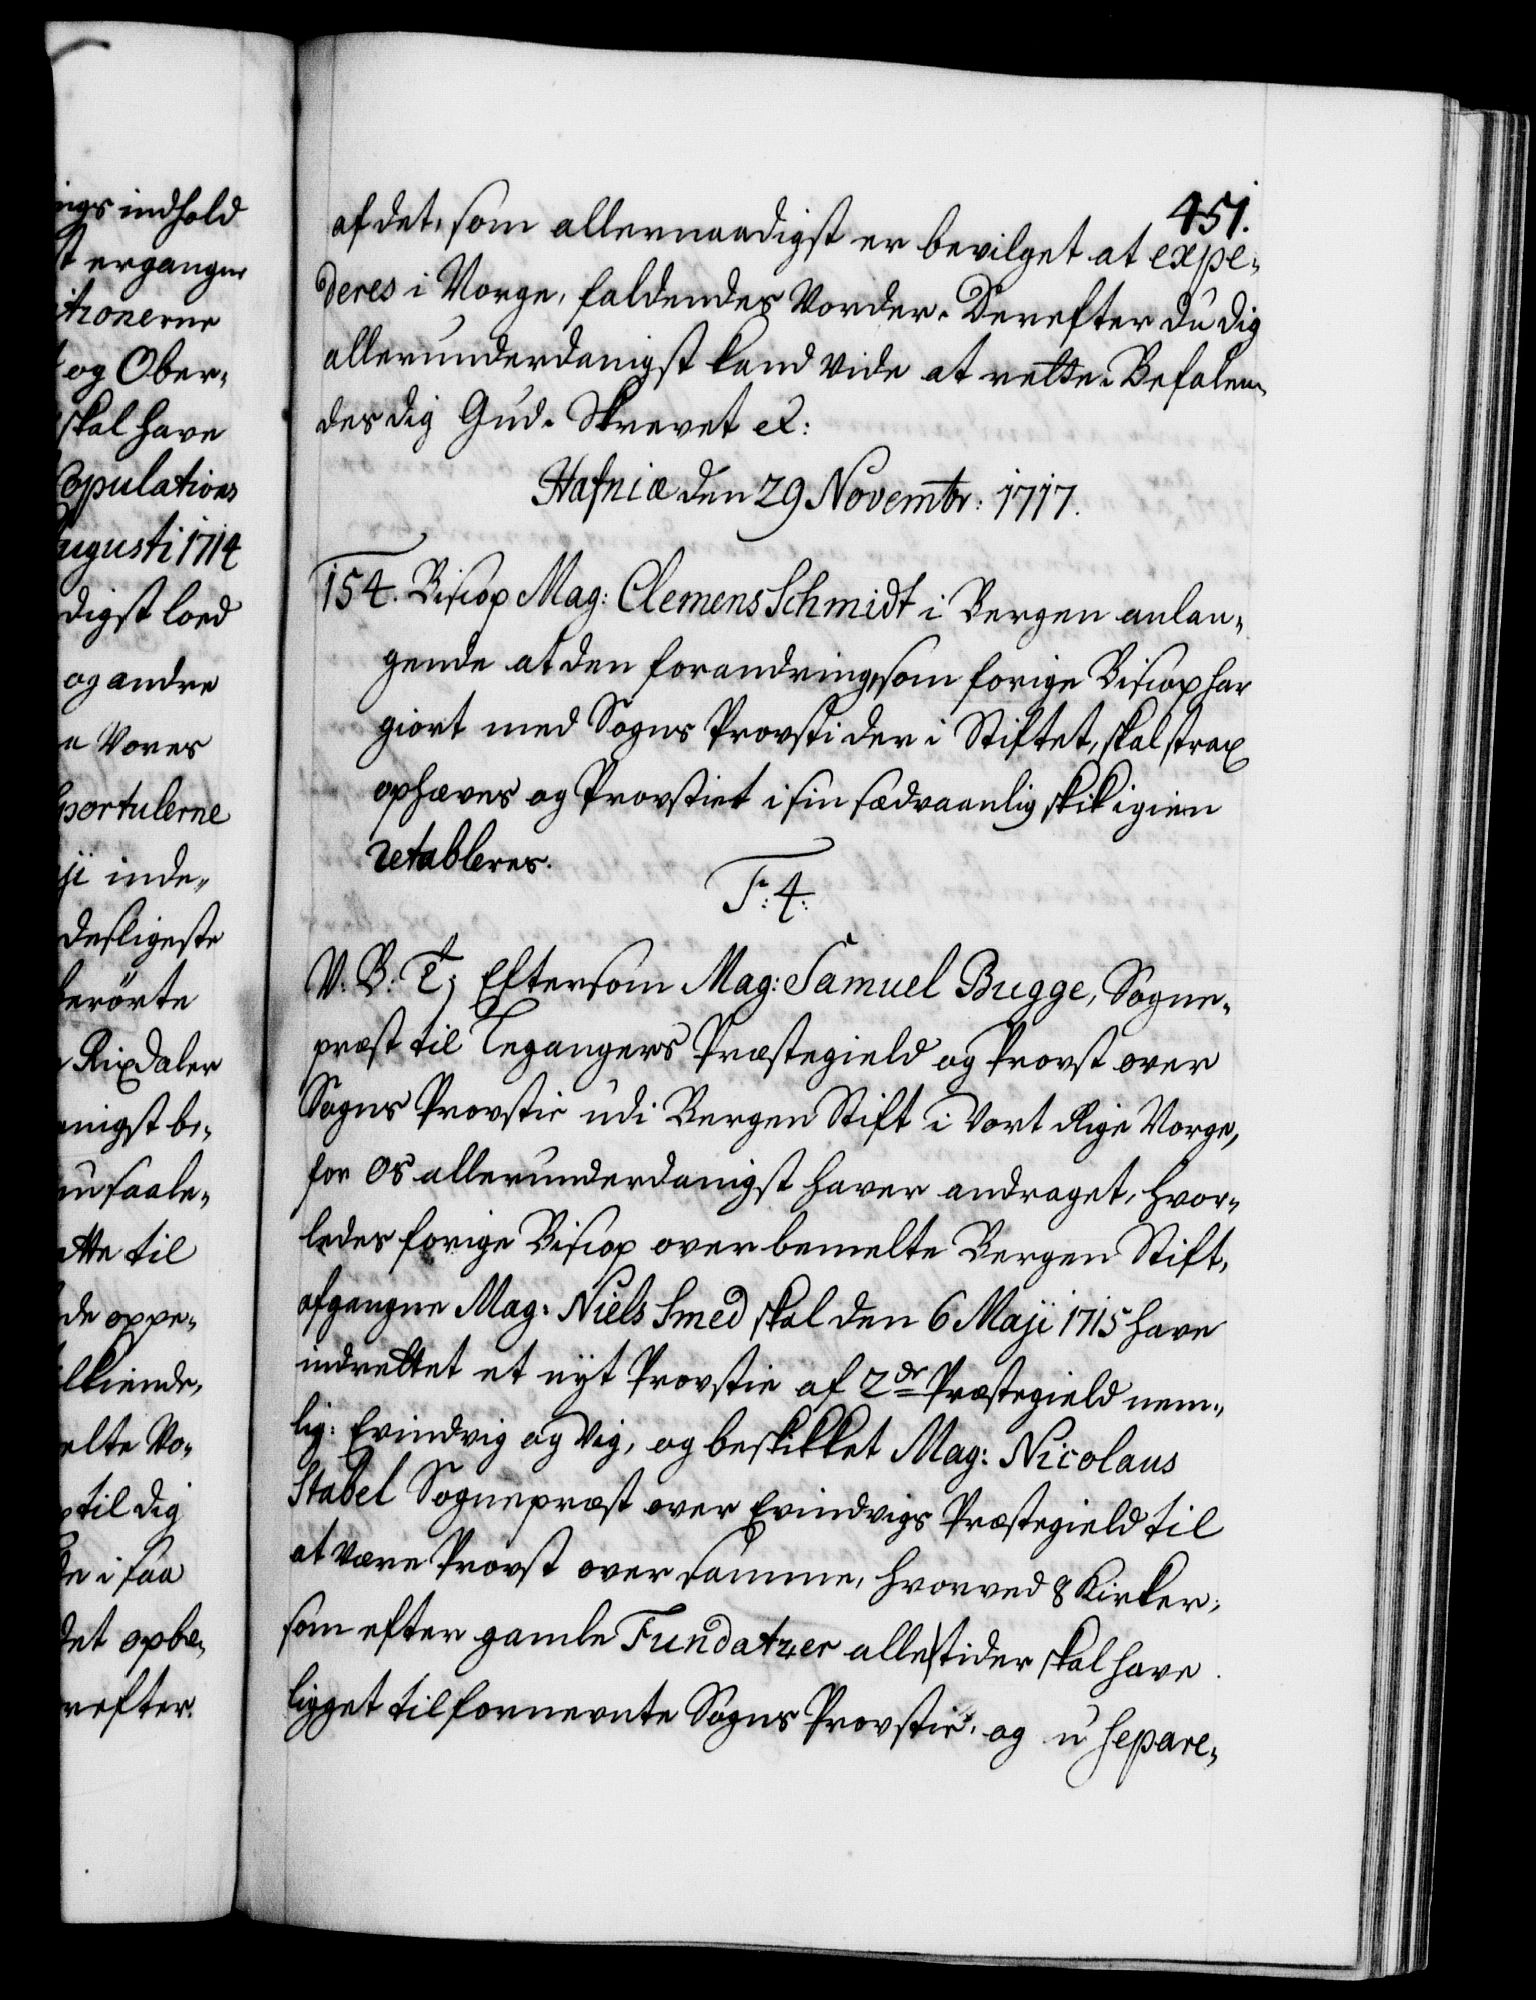 ings indhold
st ergangne
itionerne
og Ober-
skal have
Copulations
Augusti 1714
digst loed
og andre
Vores
Sportulerne
ji inde-
desligeste
berørte
Rixdaler
nigst be-
nu saale-
ette til
de oppe-
lkiende,
elte Vo-
til dig
de i saa
det opbe-
refter.
451.
af det, som allernaadigst er bevilget at expe-
deres i Norge, faldendes Vorder. Derefter du dig
allerunderdanigst kand vide at rette. Befalen-
des dig Gud. Skrevet etc:
Hafniæ den 29 Novembr: 1717.
154. Biscop Mag: Clemens Schmidt i Bergen anlan-
gende at den forandring, som forige Biscop har
giort med Sogns Provsti der i Stiftet, skal strax
ophæves og Provstiet i sin sædvaanlig skik igien
retableres.
F: 4:
V. B. T; Eftersom Mag: Samuel Bugge, Sogne-
præst til Legangers Præstegield og Provst over
Sogns Provstie udi Bergen Stift i Vort Rige Norge,
for Os allerunderdanigst haver andraget, hvor-
ledes forige Biscop over bemelte Bergen Stift,
afgangne Mag: Niels Smed skal den 6 Maji 1715 have
indrettet et nyt Provstie af 2de Præstegield nem-
lig: Evindvig og Vig, og beskikket Mag: Nicolaus
Stabel Sognepræst over Evindvigs Præstegield til
at være Provst over samme, hvorved 8 Kirker,
som efter gamle Fundatzer alle tider skal have
ligget til fornevnte Sogns Provstie, og u separe-